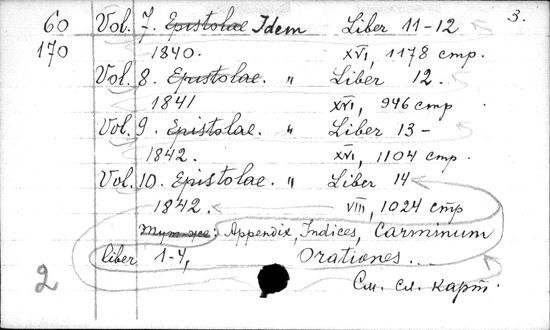 3.
60 Vol. 7. Epistolae Idem Liber 11-12
170 1840. XVI, 1178 стр.
Vol. 8. Epistolae. " Liber 12.
1841 XVI, 946 стр
Vol. 9. Epistolae. " Liber 13-
1842. XVI, 1104 стр.
Vol. 10. Epistolae. " Liber 14
1842. VIII, 1024 стр
Тут-же: Appendix, Indices, Carminum
liber 1-4, Orationes...
2 См. сл. карт.